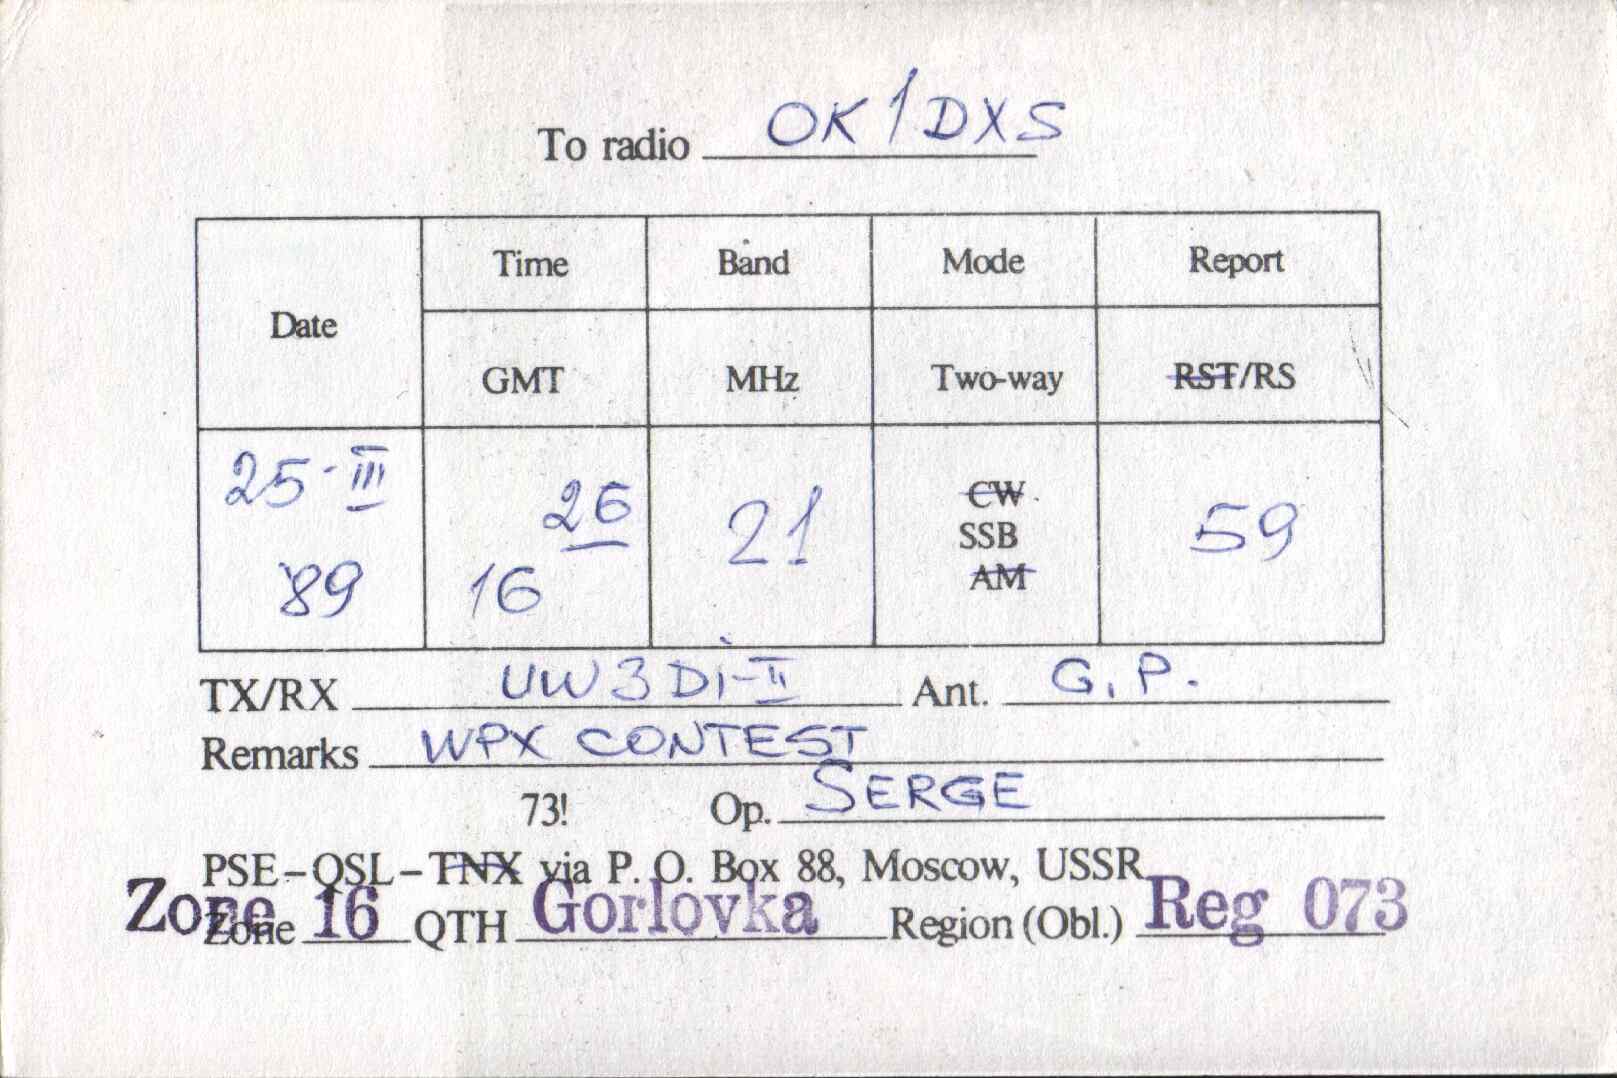 To radio OK1DXS
Date Time Band Mode Report
GMT MHz Two-way RST/RS
25-III 89 16 26 21 CW SSB AM 59
TX/RX UW3Di-II Ant. G.P.
Remarks WPX CONTEST
73! Op. SERGE
PSE-QSL-TNX via P. O. Box 88, Moscow, USSR
Zone Zone 16 QTH Gorlovka Region (Obl.) Reg 073